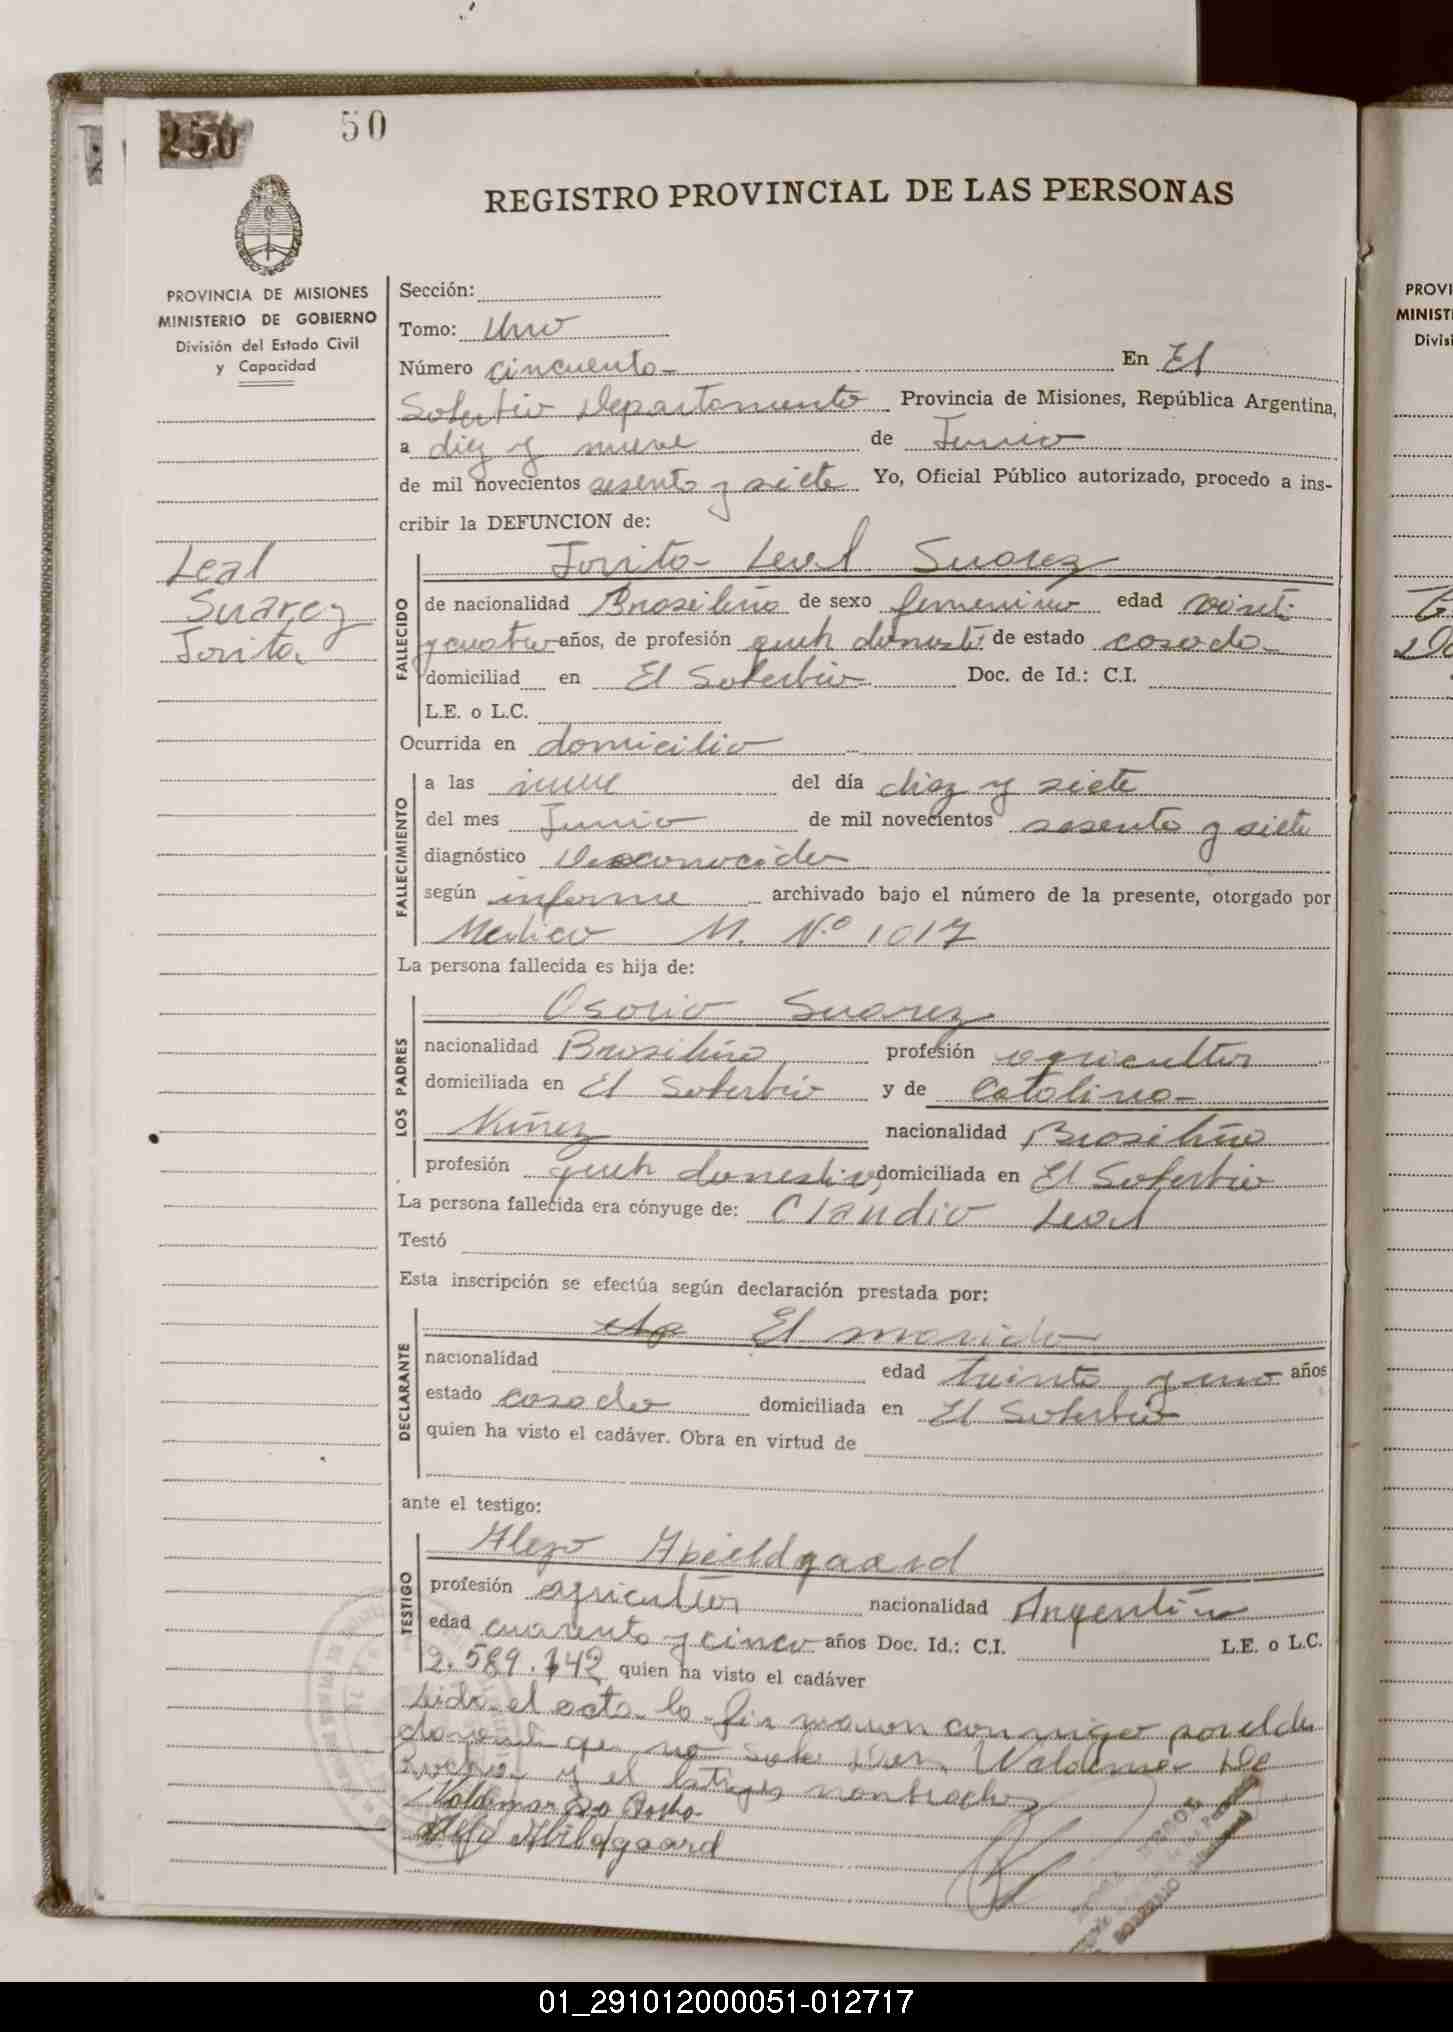 250
50
REGISTRO PROVINCIAL DE LAS PERSONAS
PROVINCIA DE MISIONES
MINISTERIO DE GOBIERNO
División del Estado Civil
y Capacidad
Sección:
Tomo: Uno
Número cincuenta En El
Soberbio Departamento Provincia de Misiones, República Argentina,
a diez y nueve de Junio
de mil novecientos sesenta y siete Yo, Oficial Público autorizado, procedo a ins-
cribir la DEFUNCION de:
Leal
Suarez
Jorita
FALLECIDO
Jorita Leal Suarez
de nacionalidad Brasileña de sexo femenino edad veinti
y cuatro años, de profesión queh domest. de estado casada
domiciliad en El Soberbio Doc. de Id.: C.I.
L.E. o L.C.
Ocurrida en domicilio
FALLECIMIENTO
a las nueve del día diez y siete
del mes Junio de mil novecientos sesenta y siete
diagnóstico Desconocido
según informe archivado bajo el número de la presente, otorgado por
Medico M. Nº 1017
La persona fallecida es hija de:
LOS PADRES
Osorio Suarez
nacionalidad Brasileño profesión agricultor
domiciliada en El Soberbio y de Catalina
Núñez nacionalidad Brasileña
profesión queh domestico domiciliada en El Soberbio
La persona fallecida era cónyuge de: Claudio Leal
Testó
Esta inscripción se efectúa según declaración prestada por:
DECLARANTE
El marido
nacionalidad edad treinta y uno años
estado casado domiciliada en El Soberbio
quien ha visto el cadáver. Obra en virtud de
ante el testigo:
TESTIGO
Alejo Abieldgaard
profesión agricultor nacionalidad Argentino
edad cuarenta y cinco años Doc. Id.: C.I. L.E. o L.C.
2.589.142 quien ha visto el cadáver
Leida el acta la firmaron conmigo por el decla
rante que no sabe Don Waldemar Da
Rocha y el testigo nombrado
Valdimar Da Rocha
Alejo Abildgaard
PROVI
MINIST
Divisi
01_291012000051-012717